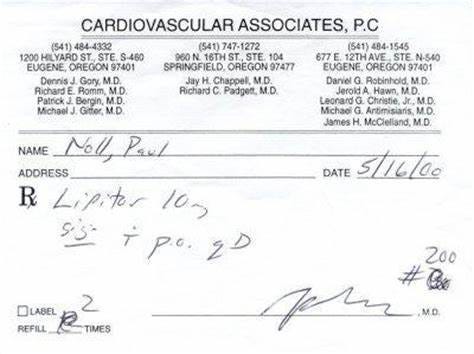 CARDIOVASCULAR ASSOCIATES, P.C
(541) 484-4332
1200 HILYARD ST., STE. S-460
EUGENE, OREGON 97401
Dennis J. Gory, M.D.
Richard E. Romm, M.D.
Patrick J. Bergin, M.D.
Michael J. Gitter, M.D.
(541) 747-1272
960 N. 16TH ST., STE. 104
SPRINGFIELD, OREGON 97477
Jay H. Chappell, M.D.
Richard C. Padgett, M.D.
(541) 484-1545
677 E. 12TH AVE., STE. N-540
EUGENE, OREGON 97401
Daniel G. Robinhold, M.D.
Jerold A. Hawn, M.D.
Leonard G. Christie, Jr., M.D.
Michael G. Antimisiaris, M.D.
James H. McClelland, M.D.
NAME Noll, Paul
ADDRESS DATE 5/16/00
℞ Lipitor 10mg
sig i p.o. qD
200
#
LABEL
REFILL 2 TIMES
, M.D.